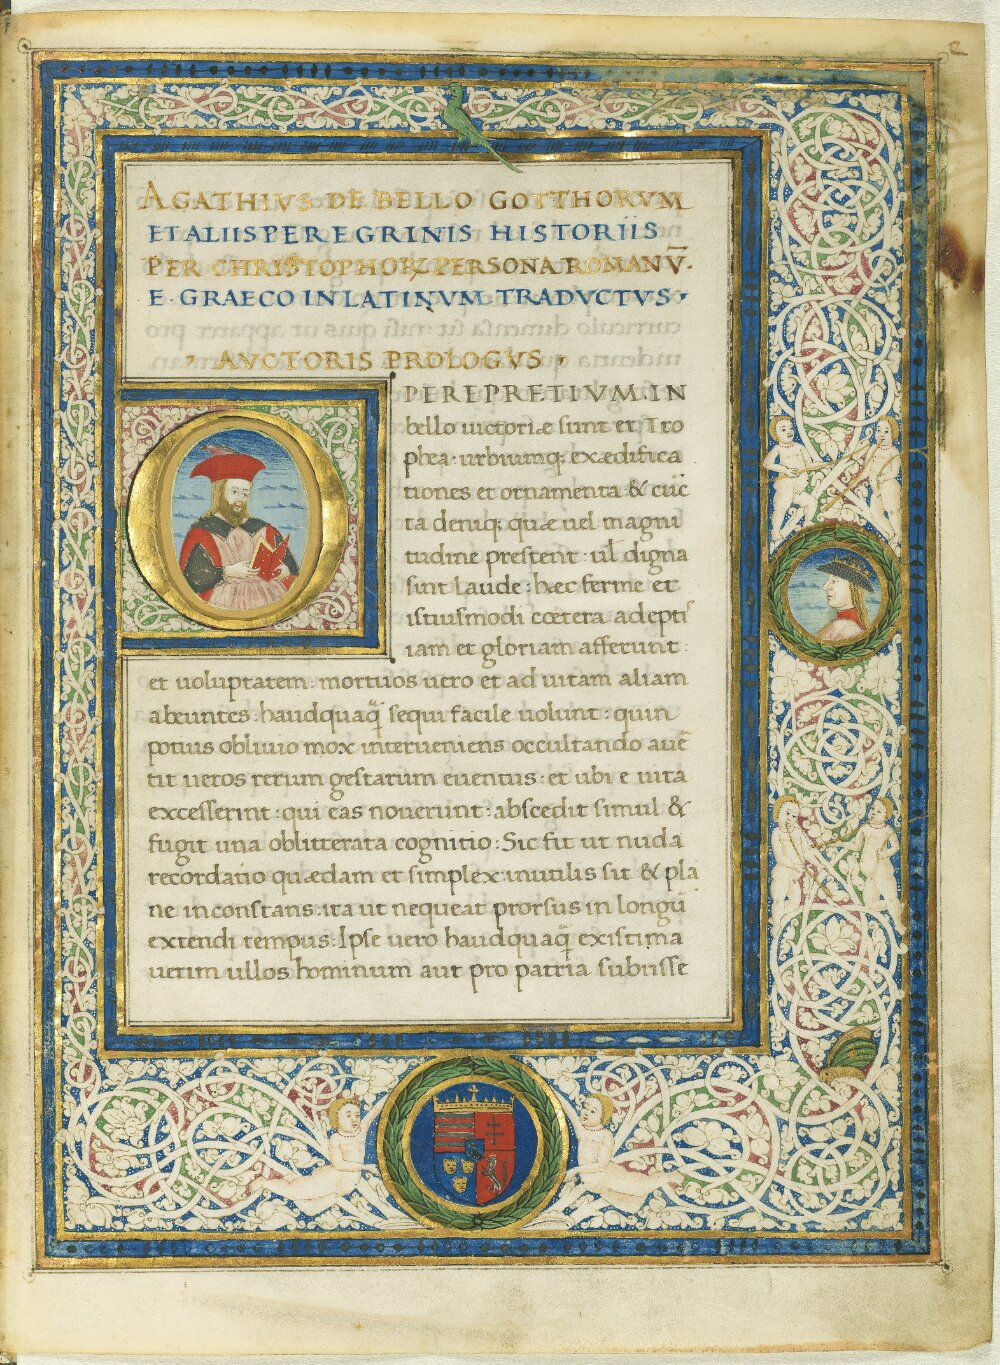 AGATHIVS DE BELLO GOTTHORVM
ET ALIIS PEREGRINIS HISTORIIS
PER CHRISTOPHOꝜ PERSONA ROMANṼ·
E·GRAECO IN LATINVM·TRADVCTVS·
·AVCTORIS PROLOGVS·
OPEREPRETIVM IN
bello uictoriæ sunt et Tro
phea· urbiumq; exædifica
tiones et ornamenta & cūc
ta deniq; quæ uel magni
tudine prestent· ul̄ digna
sint laude· hæc ferme et
istiusmodi cœtera adepti
iam et gloriam afferunt:
et uoluptatem· mortuos uero et ad uitam aliam
abeuntes haudquaq̃ sequi facile uolunt: quin
potius obliuio mox interueniens occultando auē
tit ueros rerum gestarum euentus· et ubi e uita
excesserint· qui eas nouerunt· abscedit simul &
fugit una oblitterata cognitio: Sic fit ut nuda
recordatio quædam et simplex· inutilis sit & pla
ne inconstans· ita ut nequeat prorsus in longū
extendi tempus: Ipse uero haudquaq̃ existima
uerim ullos hominum aut pro patria subiisse